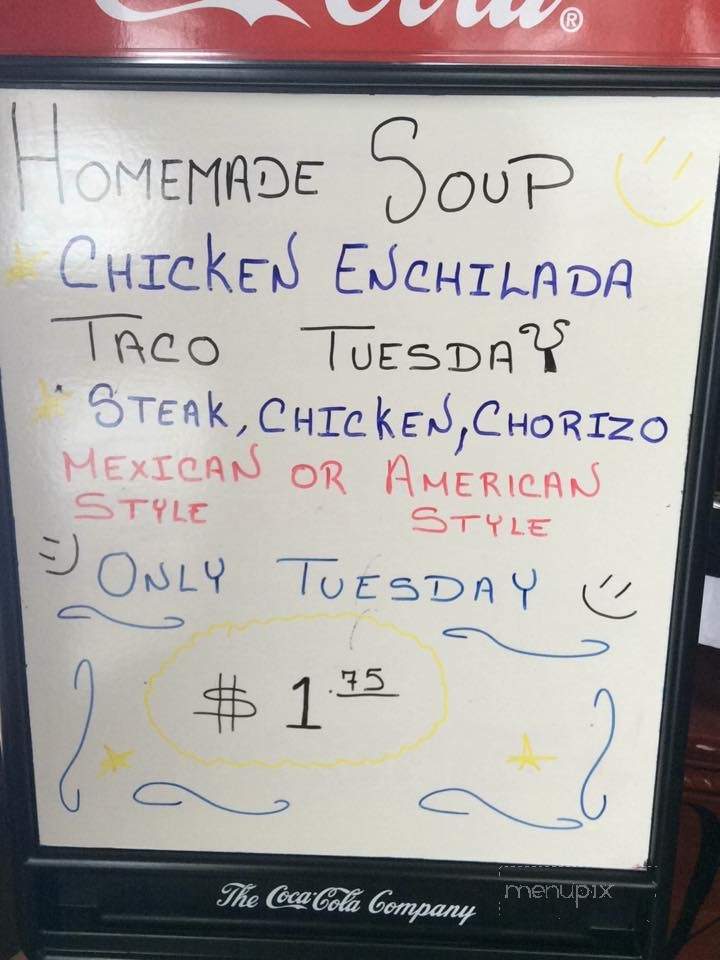 Cola®
HOMEMADE SOUP
CHICKEN ENCHILADA
TACO TUESDAY
STEAK, CHICKEN, CHORIZO
MEXICAN OR AMERICAN
STYLE STYLE
ONLY TUESDAY
$1.75
The Coca-Cola Company
menupix